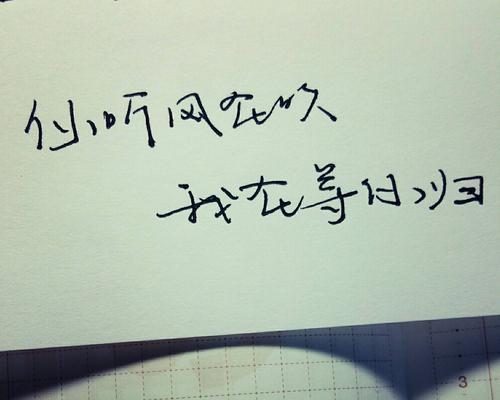 你听风在吹
我在等你归
3